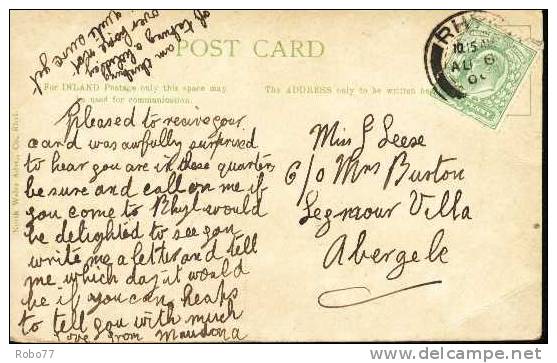 am thinking
of taking a holiday
over here not
quite sure yet
POST CARD
For INLAND Postage only this space may
be used for communication.
The ADDRESS only to be written here
RHYL
10.15 AM
AU 6
Pleased to recive your
card was awfully surprised
to hear you are in these quarters
be sure and call on me if
you come to Rhyl would
be delighted to see you
write me a letter and tell
me which day it would
be if you can. heaps
to tell you with much
love from
Miss G Leese
C/o Mrs Burton
Seymour Villa
Abergele
North Wales Advg. Co. Rhyl.
Robo77
delcampe.net